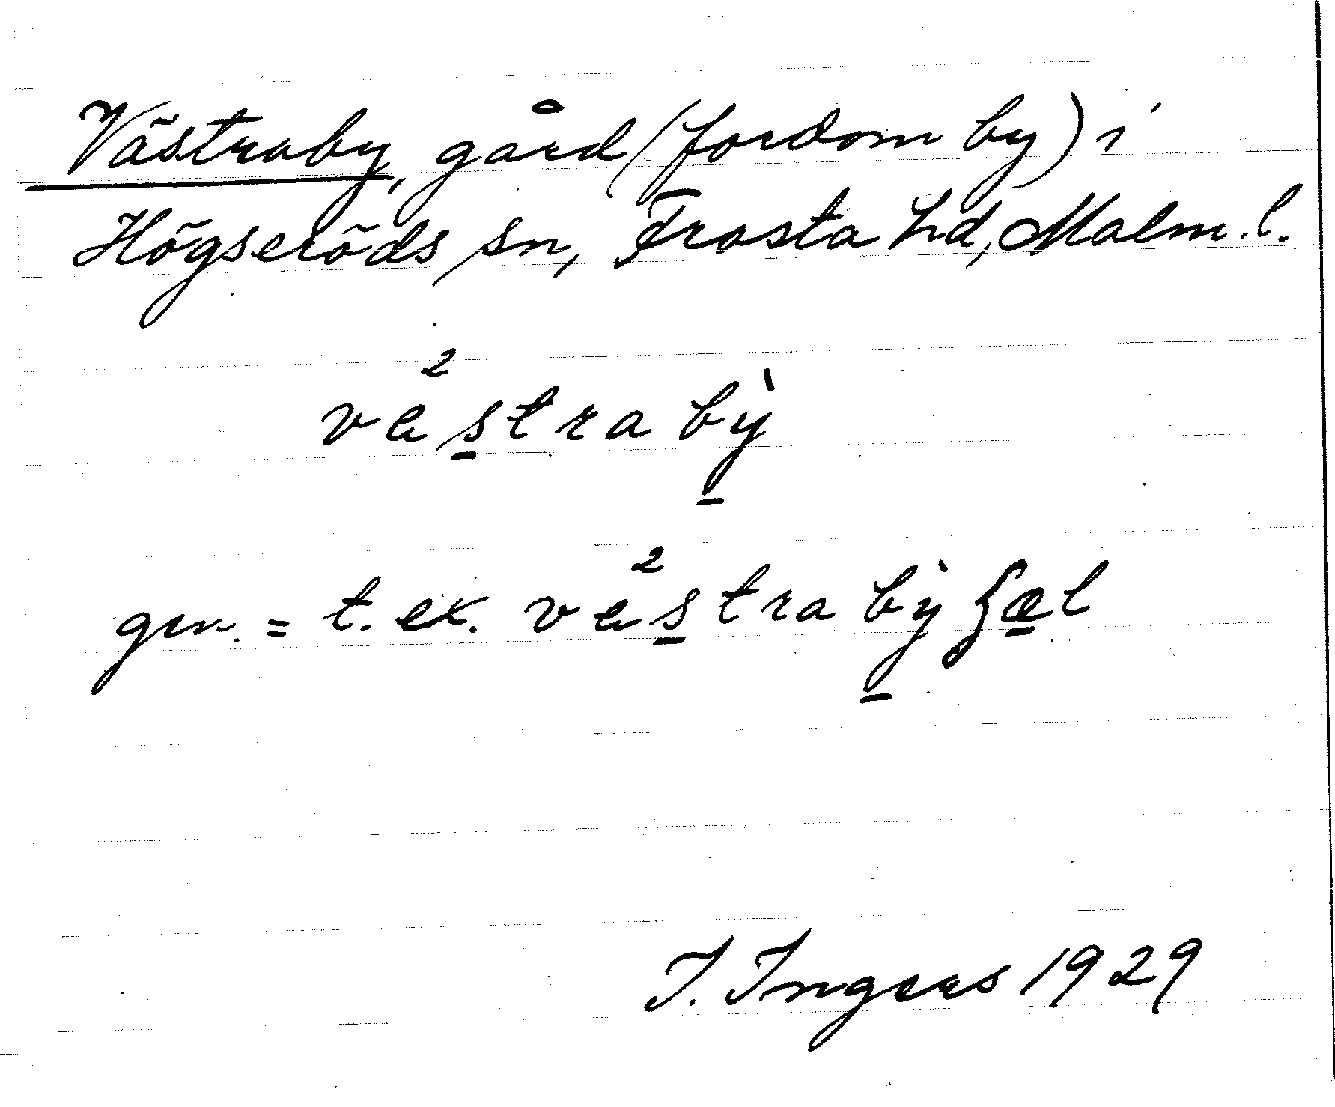 Västraby, gård (fordom by) i
Högseröds sn, Frosta hd, Malm. l.
2
västra bỳ
2
gen. = t. ex. västra bỳ ʃæl
I. Ingers 1929